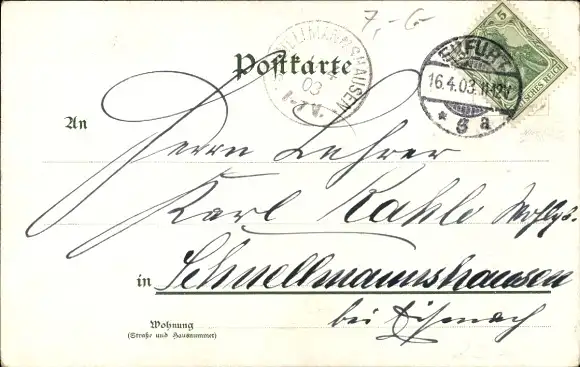 7,-G
SCHNELLMANNSHAUSEN
4
03
1-7V.
Postkarte
ERFURT
16.4.03.11-12V
* 5 a
5
DEUTSCHES REICH
An
Herrn Lehrer
Karl Kahle Wohlg.
in Schnellmannshausen
bei
Wohnung
(Straße und Hausnummer)